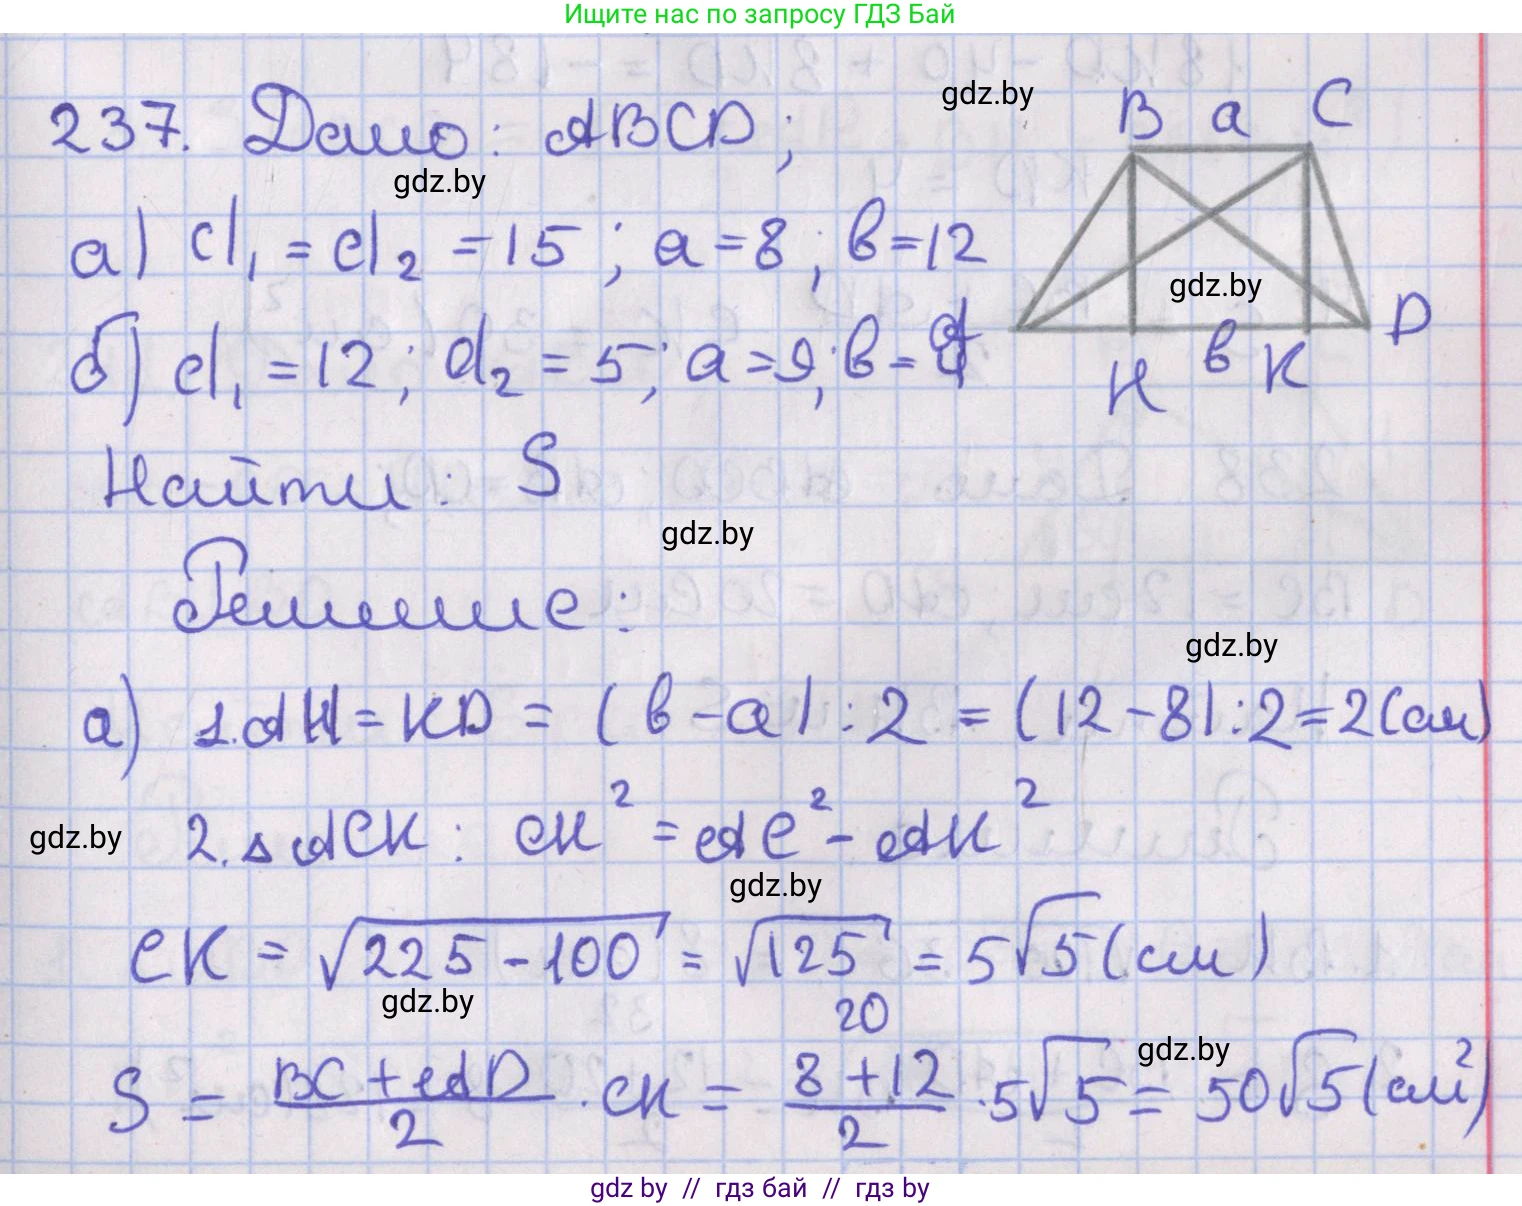 Ищите нас по запросу ГДЗ Бай
237. Дано: ABCD;
gdz.by
B a C
gdz.by
а) d₁ = d₂ = 15; a = 8; b = 12
gdz.by
D
б) d₁ = 12; d₂ = 5; a = 9; b =
H b K
Найти: S
gdz.by
Решение:
gdz.by
а) 1. AH = KD = (b - a) : 2 = (12 - 8) : 2 = 2 (см)
gdz.by
2. △ ACK: CK² = AC² - AK²
gdz.by
CK = √225 - 100 = √125 = 5√5 (см)
gdz.by
20
gdz.by
S = BC + AD / 2 · CK = 8 + 12 / 2 · 5√5 = 50√5 (см²)
gdz by // гдз бай // гдз by